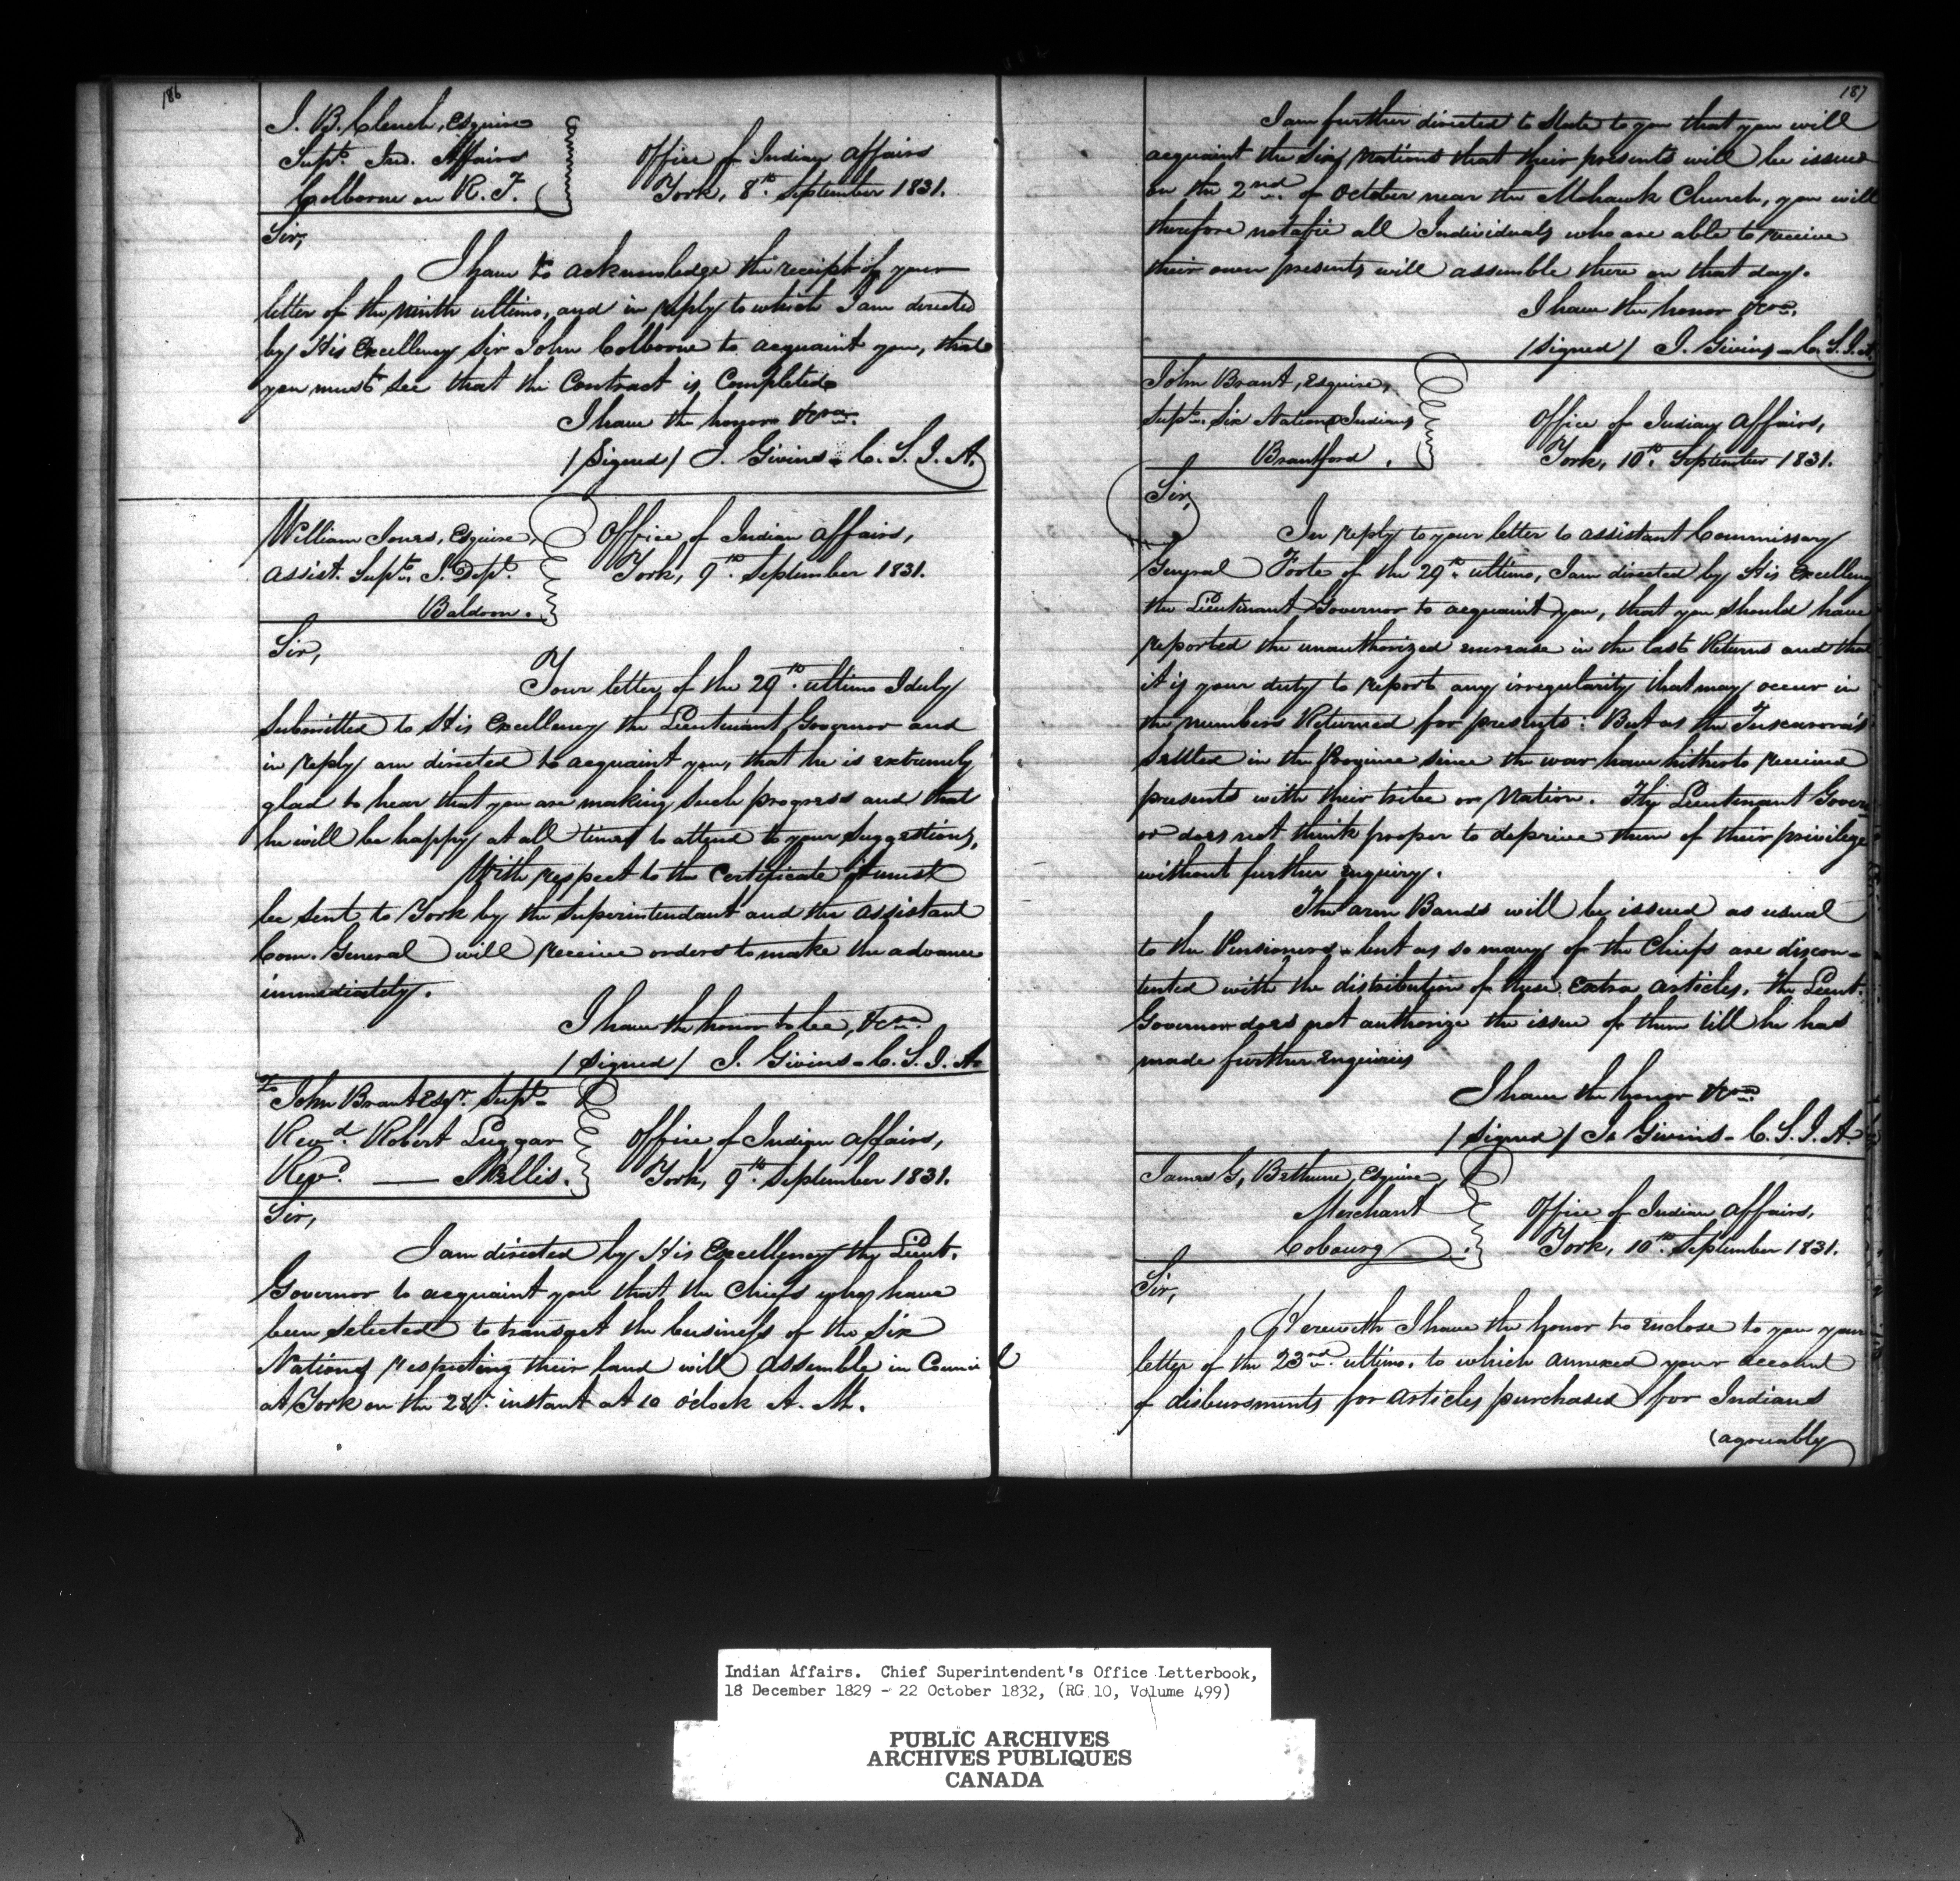 186
J. B. Clench, Esquire
Supt. Ind. Affairs
Colborne on R. T.
Office of Indian Affairs
York, 8th September 1831.
Sir,
I have to acknowledge the receipt of your
letter of the ninth ultimo, and in reply to which I am directed
by His Excellency Sir John Colborne to acquaint you, that
you must see that the Contract is Completed.
I have the honor &c.
/Signed/ J. Givins - C. S. I. A.
William Jones, Esquire,
Assist. Supt. I. Dept.
Baldoon.
Office of Indian Affairs,
York, 9th September 1831.
Sir,
Your letter of the 29th ultimo I duly
Submitted to His Excellency the Lieutenant Governor and
in reply am directed to acquaint you, that he is extremely
glad to hear that you are making such progress and that
he will be happy at all times to attend to your Suggestions,
With respect to the Certificate it must
be sent to York by the Superintendant and the Assistant
Com. General will receive orders to make the advance
immediately.
I have the honor to be, &c.
/Signed/ J. Givins - C. S. I. A.
To John Brant Esqr. Supt.
Revd. Robert Luggar
Revd. —— Nellis.
Office of Indian Affairs,
York, 9th September 1831.
Sir,
I am directed by His Excellency the Lieut.
Governor to acquaint you that the Chiefs who have
been selected to transact the business of the Six
Nations respecting their land will assemble in Council
at York on the 28th instant at 10 o'clock A. M.
187
I am further directed to State to you that you will
acquaint the Six Nations that their presents will be issued
on the 2nd of October near the Mohawk Church, you will
therefore notifie all Individuals who are able to receive
their own presents will assemble there on that day.
I have the honor &c.
/Signed/ J. Givins - C. S. I. A.
John Brant, Esquire,
Supt. Six Nations Indians
Brantford.
Office of Indian Affairs,
York, 10th September 1831.
Sir,
In reply to your letter to Assistant Commissary
General Foote of the 29th ultimo, I am directed by His Excellency
the Lieutenant Governor to acquaint you, that you should have
reported the unauthorized increase in the last Returns and that
it is your duty to report any irregularity that may occur in
the numbers Returned for presents: But as the Tuscarora's
Settled in the Province since the war have hitherto received
presents with their tribe or Nation. The Lieutenant Govern
or does not think proper to deprive them of their privilege
without further enquiry.
The arm Bands will be issued as usual
to the Pensioners - but as so many of the Chiefs are discon-
tented with the distribution of these Extra Articles. The Lieut.
Governor does not authorize the issue of them till he has
made further Enquiries
I have the honor &c.
/Signed/ Js Givins - C. S. I. A.
James G. Bethune, Esquire,
Merchant
Cobourg
Office of Indian Affairs,
York, 10th September 1831.
Sir,
Herewith I have the honor to enclose to you your
letter of the 23rd ultimo, to which annexed your account
of disbursments for Articles purchased for Indians
(agreeably
Indian Affairs. Chief Superintendent's Office Letterbook,
18 December 1829 - 22 October 1832, (RG 10, Volume 499)
PUBLIC ARCHIVES
ARCHIVES PUBLIQUES
CANADA